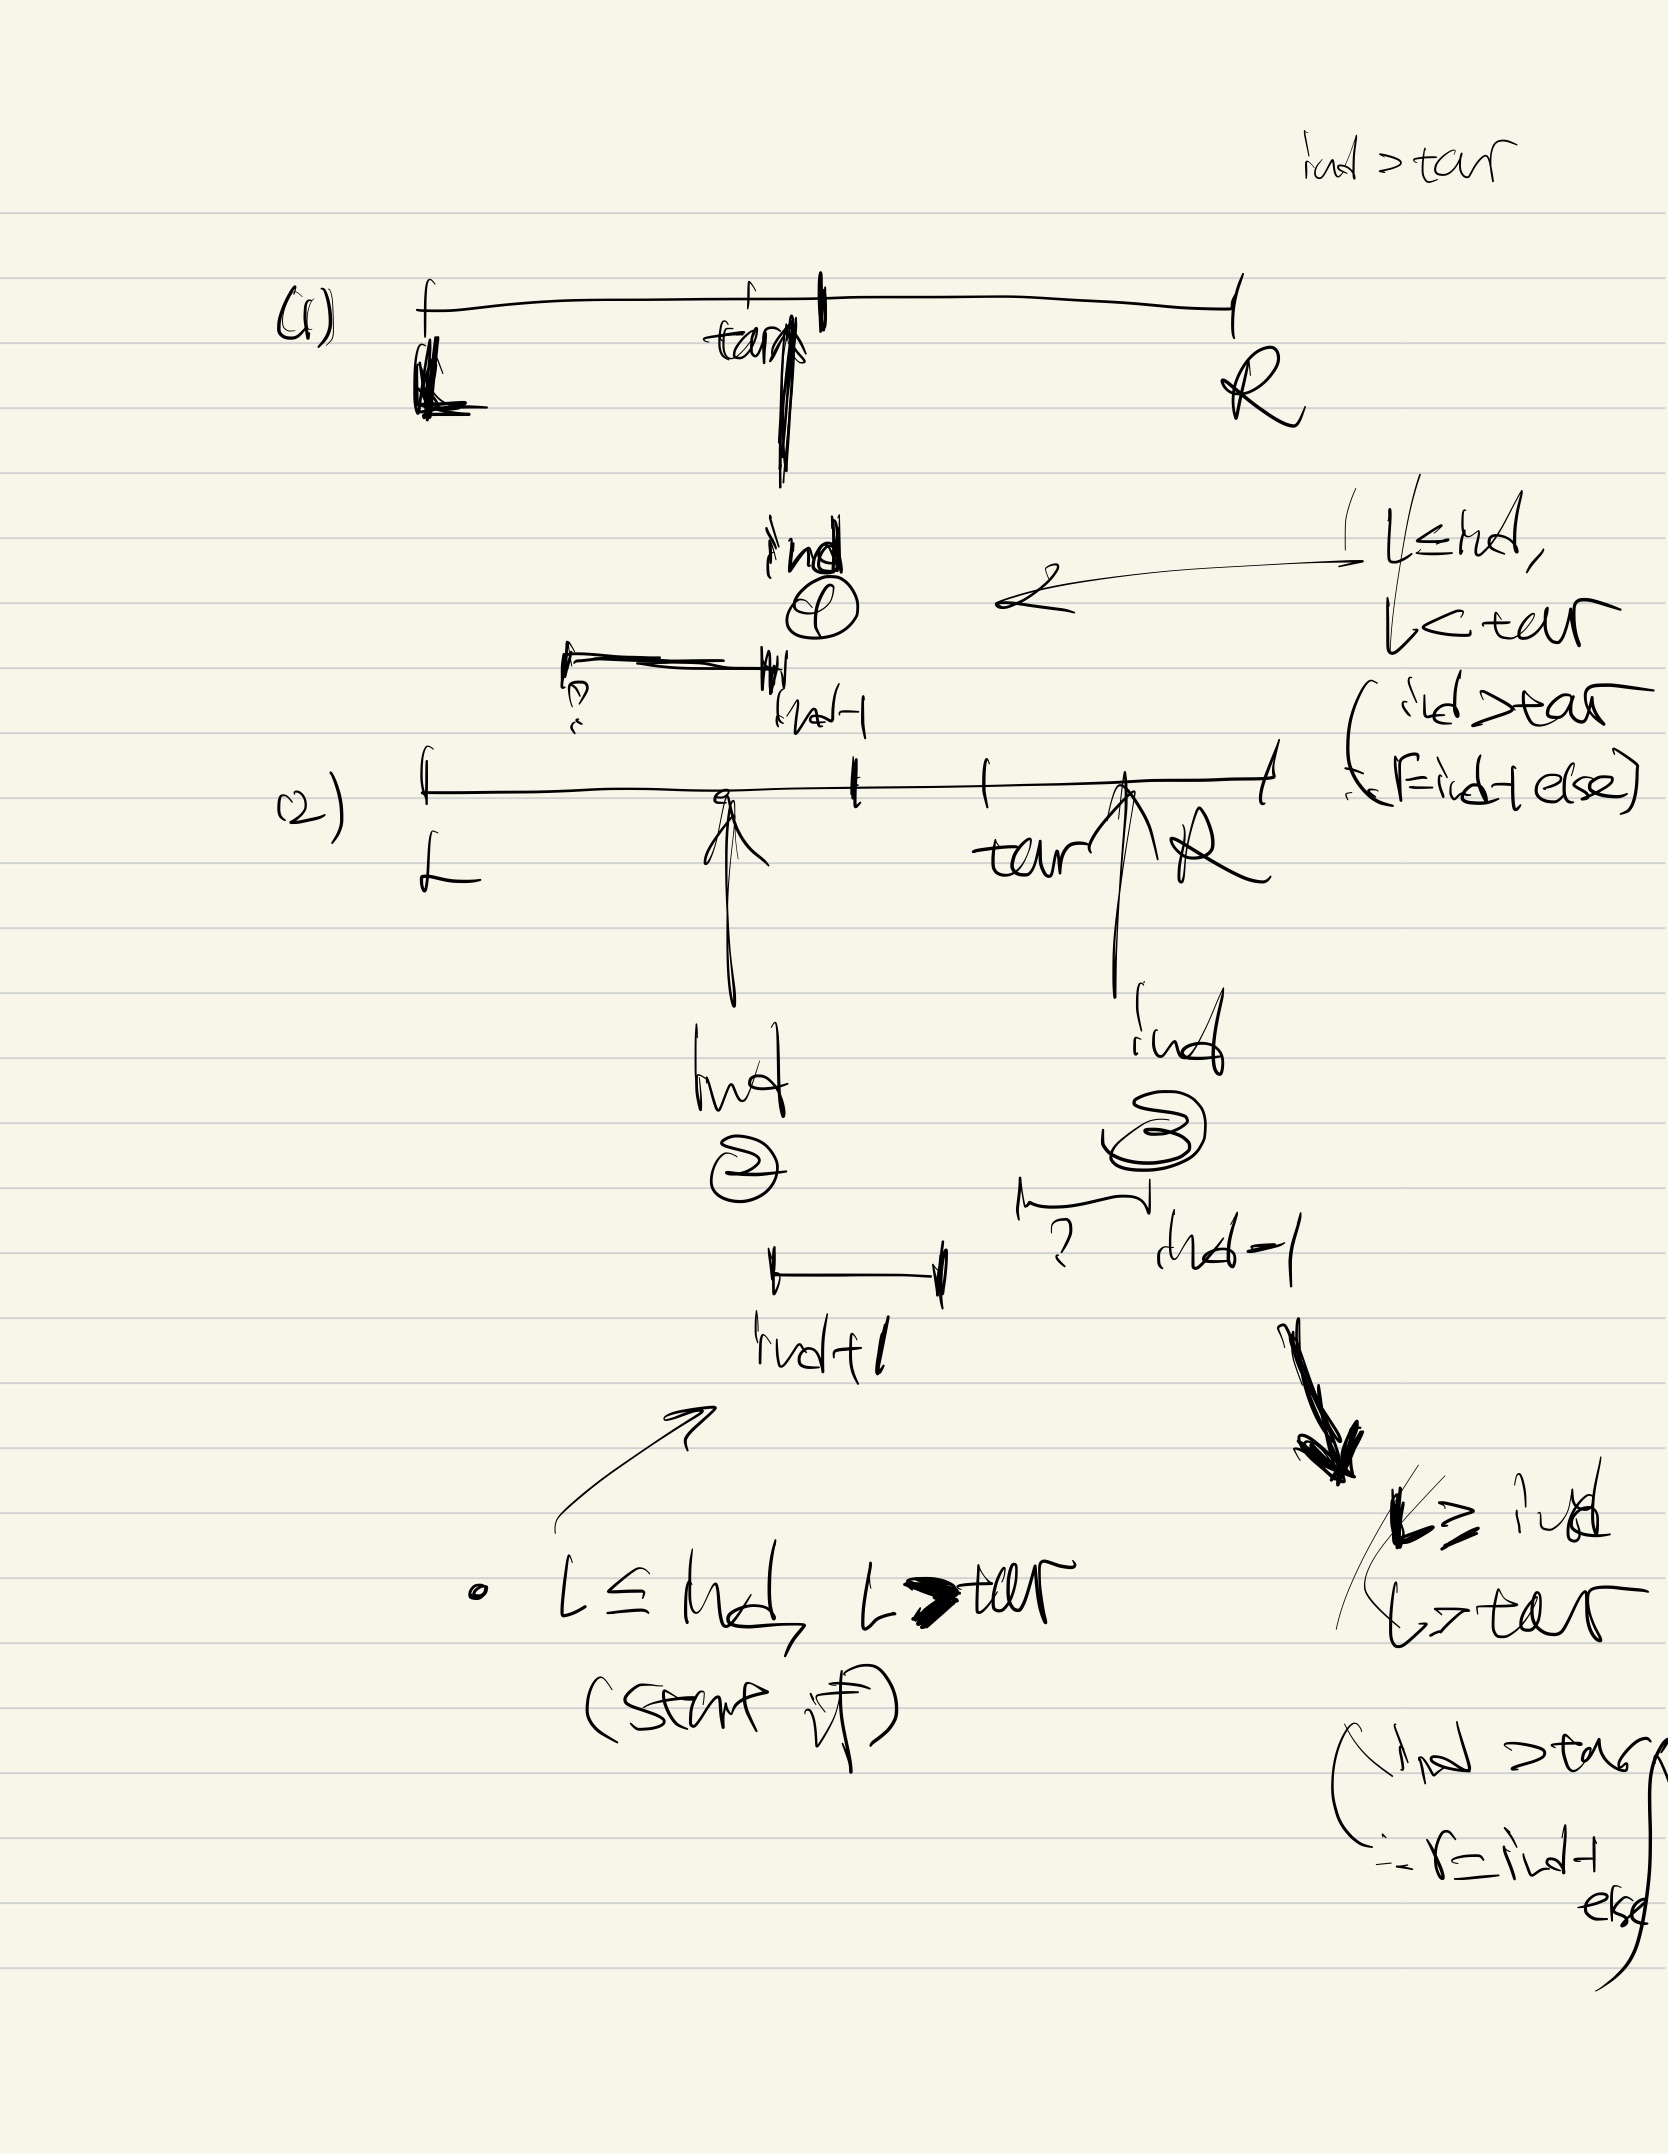 ind > tar
(1)
tar
L
R
ind
①
L ≤ ind,
L < tar
?
ind-1
(ind > tar
∴ r=ind-1 else)
(2)
L
tar
R
ind
②
ind
③
?
ind-1
ind+1
• L ≤ ind, L > tar
(start if)
L ≥ ind
L > tar
(ind > tar
∴ r=ind-1
else)